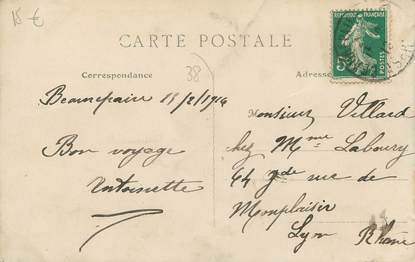 15 €
CARTE POSTALE
REPUBLIQUE FRANÇAISE
5c
POSTES
Correspondance
38
Adresse
Beaurepaire 18/2/1914
Bon voyage
Antoinette
Monsieur Villard
chez Mme Laboury
44 gde rue de
Monplaisir
Lyon Rhône